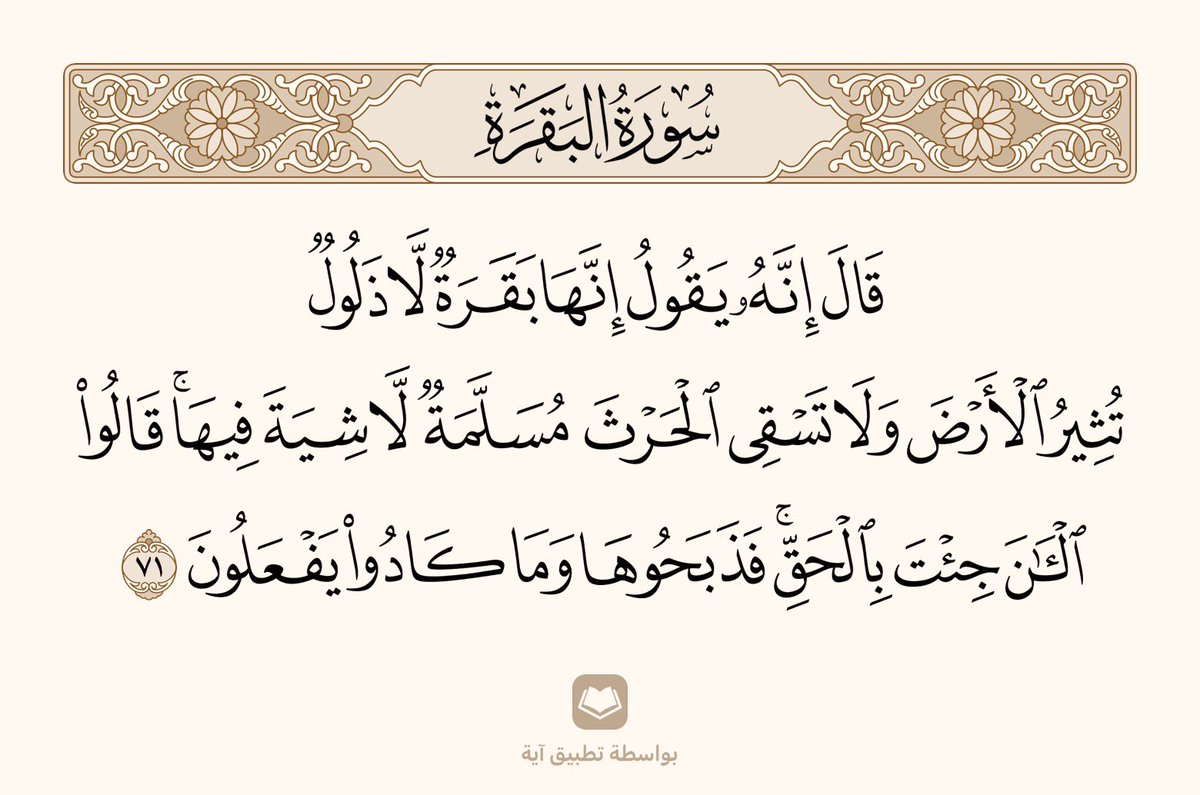 سُورَةُ البَقَرَةِ
قَالَ إِنَّهُۥ يَقُولُ إِنَّهَا بَقَرَةٌ لَّا ذَلُولٌ
تُثِيرُ ٱلْأَرْضَ وَلَا تَسْقِى ٱلْحَرْثَ مُسَلَّمَةٌ لَّا شِيَةَ فِيهَا ۚ قَالُوا۟
ٱلْـَٔـٰنَ جِئْتَ بِٱلْحَقِّ ۚ فَذَبَحُوهَا وَمَا كَادُوا۟ يَفْعَلُونَ ٧١
بواسطة تطبيق آية